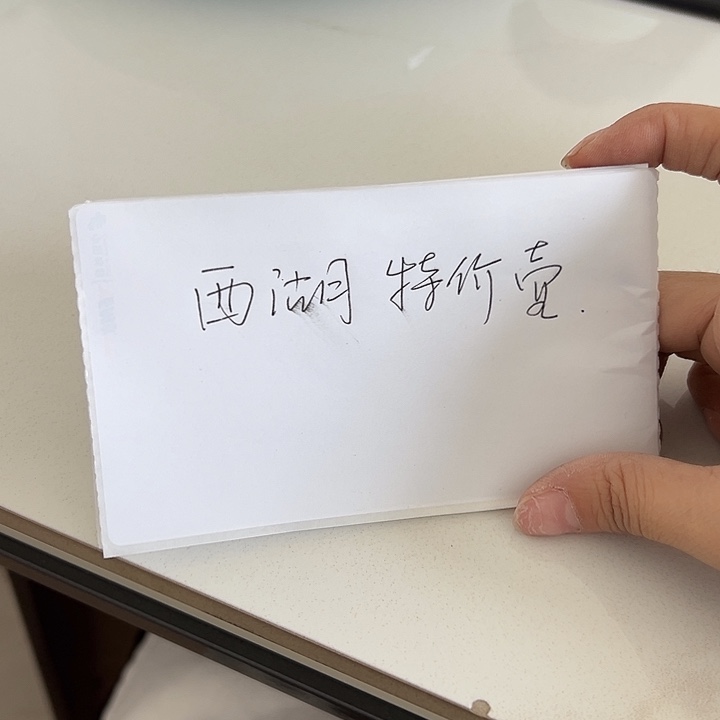 西湖 特价壶.